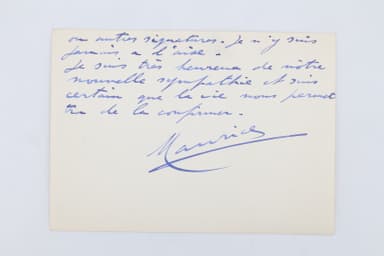 ou autres signatures. Je n'y suis
jamais à l'aise.
Je suis très heureux de notre
nouvelle sympathie et suis
certain que la vie nous permet
tra de la confirmer.
Maurice